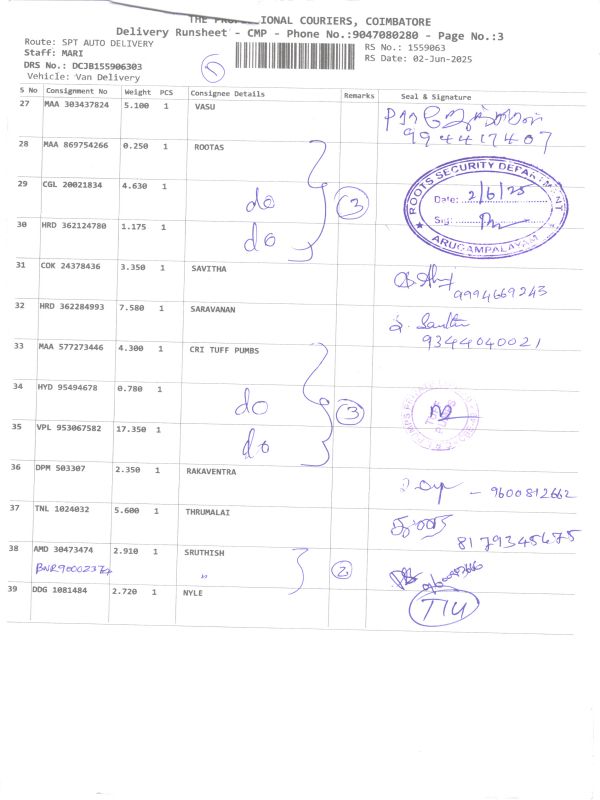 THE PROFESSIONAL COURIERS, COIMBATORE
Delivery Runsheet - CMP - Phone No.:9047080280 - Page No.:3
Route: SPT AUTO DELIVERY
RS No.: 1559063
Staff: MARI
RS Date: 02-Jun-2025
DRS No.: DCJB155906303
Vehicle: Van Delivery
S No Consignment No Weight PCS Consignee Details Remarks Seal & Signature
27 MAA 303437824 5.100 1 VASU
9944417407
28 MAA 869754266 0.250 1 ROOTAS
29 CGL 20021834 4.630 1 do 3
30 HRD 362124780 1.175 1 do
ROOTS SECURITY DEPARTMENT
Date: 2/6/25
Sig:
ARUGAMPALAYAM
31 COK 24378436 3.350 1 SAVITHA
9994669243
32 HRD 362284993 7.580 1 SARAVANAN
9344040021
33 MAA 577273446 4.300 1 CRI TUFF PUMBS
34 HYD 95494678 0.780 1 do 3
35 VPL 953067582 17.350 1 do
36 DPM 503307 2.350 1 RAKAVENTRA
- 9600812662
37 TNL 1024032 5.600 1 THRUMALAI
8179345675
38 AMD 30473474 2.910 1 SRUTHISH 2
39 DDG 1081484 2.720 1 NYLE